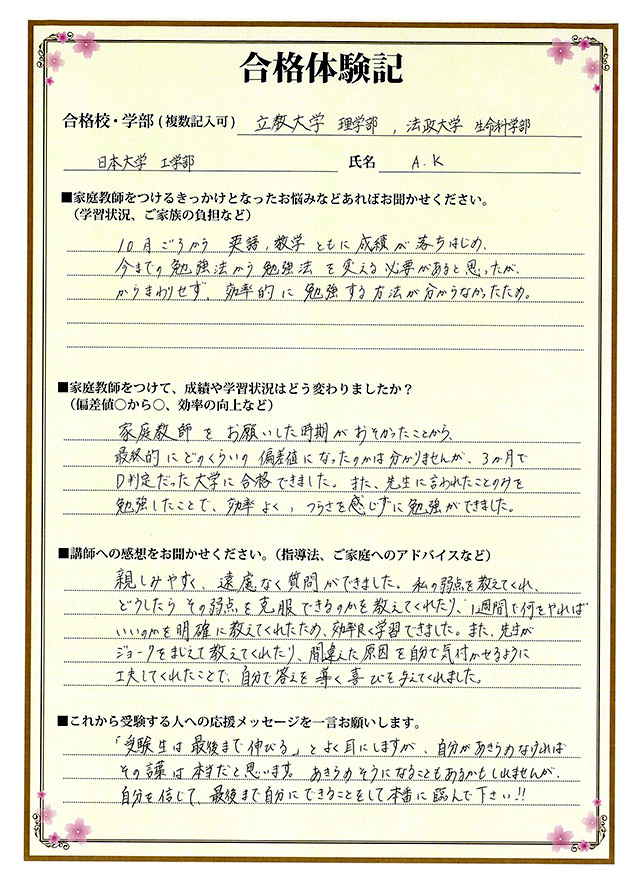 合格体験記
合格校・学部(複数記入可) 立教大学 理学部 , 法政大学 生命科学部
日本大学 工学部 氏名 A.K
■家庭教師をつけるきっかけとなったお悩みなどあればお聞かせください。
(学習状況、ご家族の負担など)
10月ごろから 英語,数学 ともに 成績が 落ちはじめ、
今までの 勉強法から 勉強法 を 変える 必要があると 思ったが、
からまわりせず、効率的に 勉強する 方法が 分からなかったため。
■家庭教師をつけて、成績や学習状況はどう変わりましたか?
(偏差値○から○、効率の向上など)
家庭教師を お願いした時期が おそかったことから、
最終的に どのくらいの 偏差値になったのかは分かりませんが、3か月で
D判定だった 大学に 合格できました。また、先生に言われたことのみを
勉強したことで、効率よく,つらさを感じずに 勉強ができました。
■講師への感想をお聞かせください。(指導法、ご家庭へのアドバイスなど)
親しみやすく、遠慮なく質問ができました。私の弱点を教えてくれ、
どうしたら その弱点を 克服できるのかを 教えてくれたり、1週間で何をやれば
いいのかを 明確に教えてくれたため、効率良く学習できました。また、先生が
ジョークをまじえて 教えてくれたり、間違えた原因を自分で気付かせるように
工夫してくれたことで、自分で答えを 導く 喜びを与えてくれました。
■これから受験する人への応援メッセージを一言お願いします。
「受験生は 最後まで 伸びる」と よく耳にしますが、自分があきらめなければ
その言葉は 本当だと思います。あきらめそうになることもあるかもしれませんが、
自分を信じて、最後まで自分にできることをして本番に 臨んで下さい!!